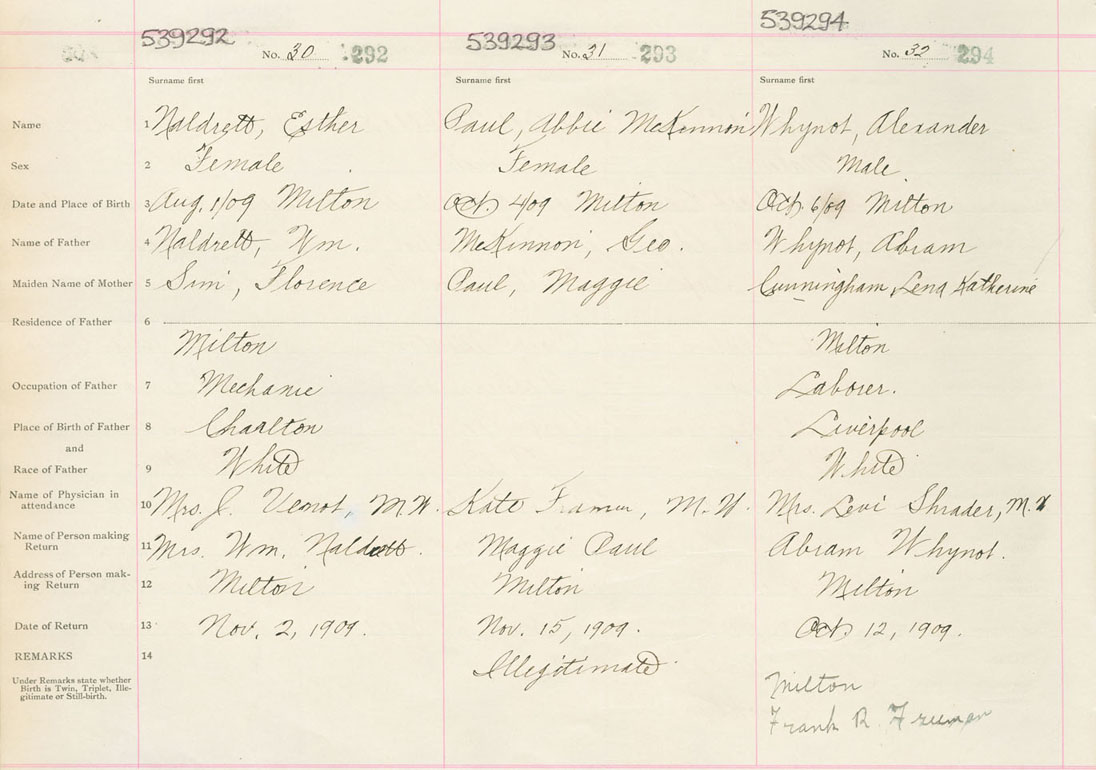 539292 539293 539294
No. 30 292 No. 31 293 No. 32 294
Surname first Surname first Surname first
Name 1 Naldrett, Esther Paul, Abbie McKinnon Whynot, Alexander
Sex 2 Female Female Male
Date and Place of Birth 3 Aug. 1/09 Milton Oct. 4/09 Milton Oct. 6/09 Milton
Name of Father 4 Naldrett, Wm. McKinnon, Geo. Whynot, Abram
Maiden Name of Mother 5 Sim, Florence Paul, Maggie Cunningham, Lena Katherine
Residence of Father 6
Milton Milton
Occupation of Father 7 Mechanic Laborer.
Place of Birth of Father 8 Charlton Liverpool
and
Race of Father 9 White White
Name of Physician in
attendance 10 Mrs. J. M.W. Kate M.W. Mrs. Levi Shrader, M.W
Name of Person making
Return 11 Mrs. Wm. Naldrett. Maggie Paul Abram Whynot.
Address of Person mak-
ing Return 12 Milton Milton Milton
Date of Return 13 Nov. 2, 1909. Nov. 15, 1909. Oct. 12, 1909.
REMARKS 14
Illegitimate
Under Remarks state whether
Birth is Twin, Triplet, Ille-
gitimate or Still-birth.
Milton
Frank R. Freeman